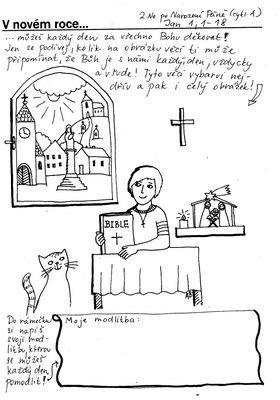 V novém roce...
2. Ne po Narození Páně (cykl A)
Jan 1, 1-18
... můžeš každý den za všechno Bohu děkovat!
Jen se podívej, kolik na obrázku věcí ti může
připomínat, že Bůh je s námi každý den, vždycky
a všude! Tyto věci vybarvi nej-
dřív a pak i celý obrázek!
BIBLE
Do rámečku
si napiš
svoji mod-
litbu, kterou
se můžeš
každý den
pomodlit!
Moje modlitba: